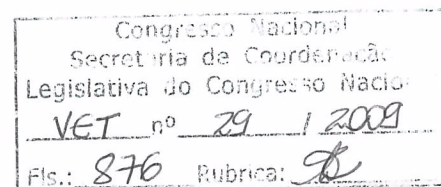 Congresso Nacional
Secretaria de Coordenação
Legislativa do Congresso Nacio
VET nº 29 / 2009
Fls.: 876 Rubrica: